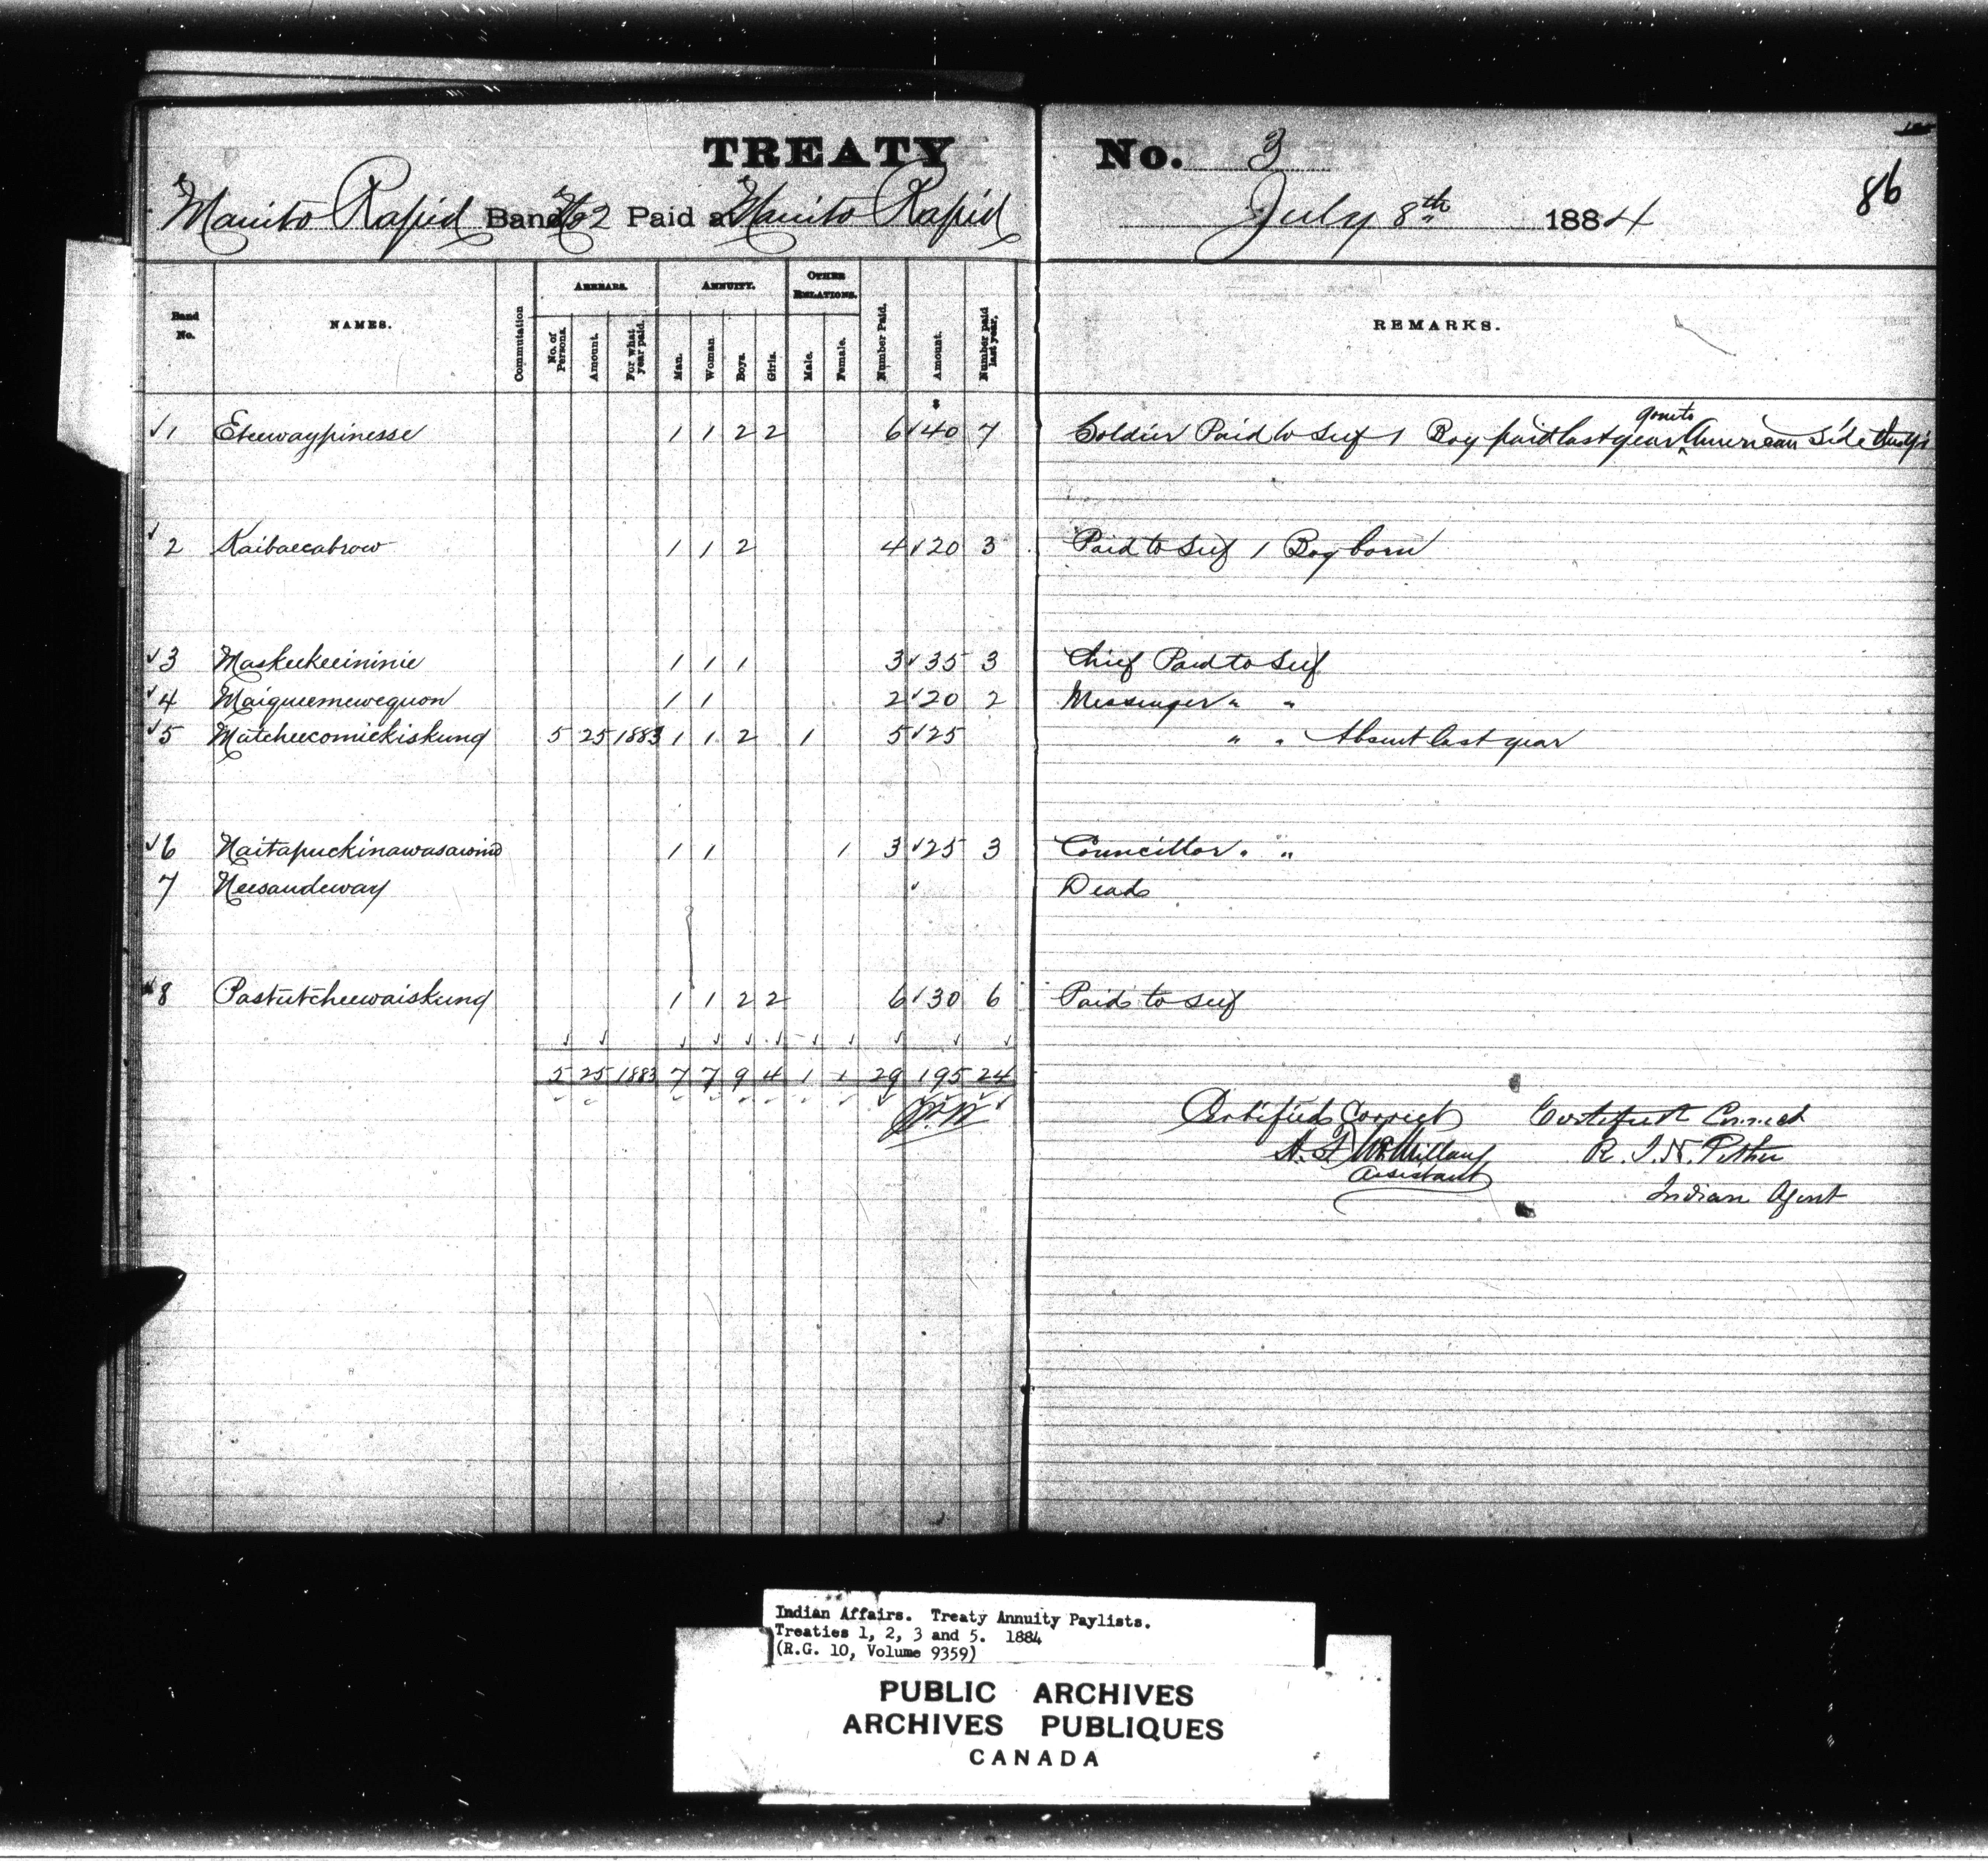 TREATY No. 3
86
Manito Rapid Band No 2 Paid at Manito Rapid July 8th 1884
Band No. NAMES. Commutation ARREARS. No. of Persons. Amount. For what year paid. ANNUITY. Man. Woman Boys. Girls. OTHER RELATIONS. Male. Female. Number Paid. Amount. Number paid last year. REMARKS.
$
1 Eteewaypinesse 1 1 2 2 6 40 7 Soldier Paid to Self 1 Boy paid last year gone to American Side
2 Kaibaecabrow 1 1 2 4 20 3 Paid to Self 1 Boy born
3 Maskeekeeininie 1 1 1 3 35 3 Chief Paid to Self
4 Maigueemewequon 1 1 2 20 2 Messenger " "
5 Matcheecomickiskung 5 25 1883 1 1 2 1 5 25 " " Absent last year
6 Naitapuckinawasawind 1 1 1 3 25 3 Councillor " "
7 Neesaudeway Dead
8 Pastutcheewaiskung 1 1 2 2 6 30 6 Paid to Self
5 25 1883 7 7 9 4 1 1 29 195 24
Certified Correct Certified Correct
A. F. McMillan R. J. N. Pither
Assistant
Indian Agent
Indian Affairs. Treaty Annuity Paylists.
Treaties 1, 2, 3 and 5. 1884
(R.G. 10, Volume 9359)
PUBLIC ARCHIVES
ARCHIVES PUBLIQUES
CANADA